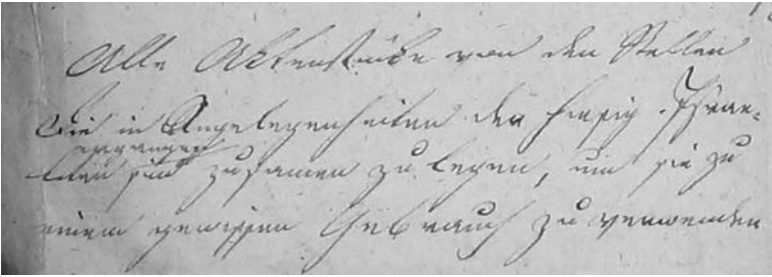 Alle Aktenstücke von den Stellen
die in Angelegenheiten der hiesig. Israe-
ergangen
liten sind zusamen zu legen, um sie zu
einem gewissen Gebrauch zu verwenden